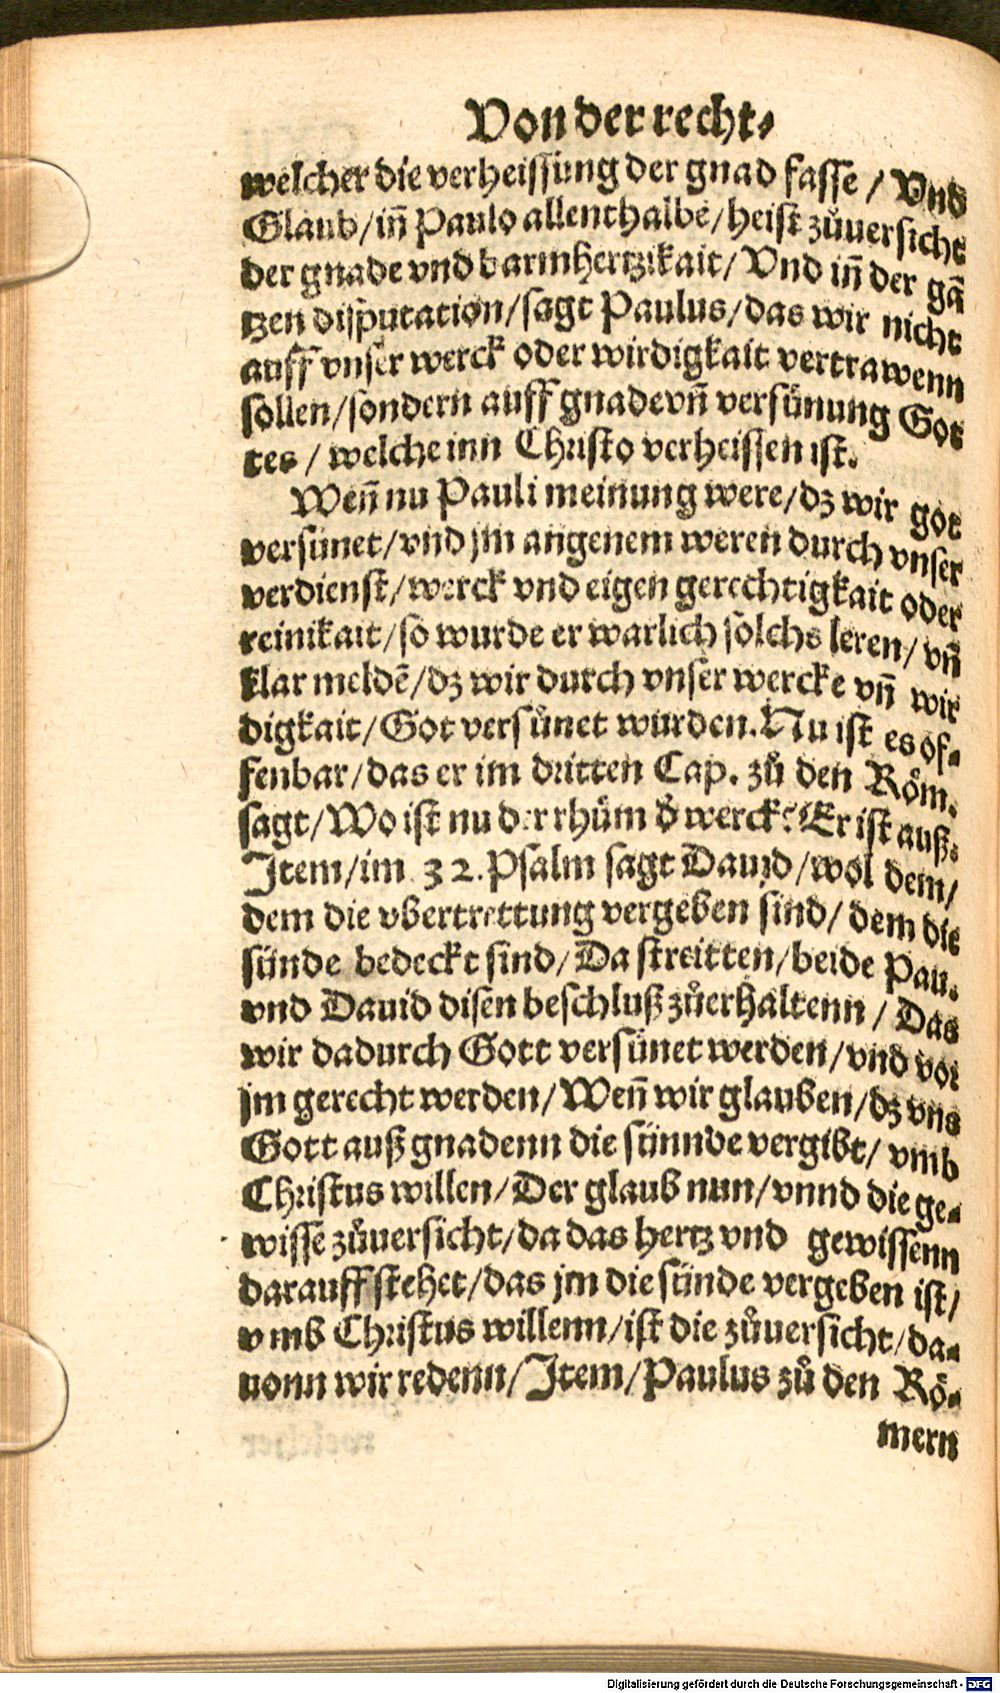 Von der recht⸗
welcher die verheissung der gnad fasse / Vnd
Glaub / iñ Paulo allenthalbē / heist zůuersicht
der gnade vnd barmhertzikait / Vnd iñ der gā
tzen disputation / sagt Paulus / das wir nicht
auff vnser werck oder wirdigkait vertrawenn
sollen / sondern auff gnade vñ versünung Got
tes / welche inn Christo verheissen ist.
Weñ nu Pauli meinung were / dz wir got
versünet / vnd jm angenem weren durch vnser
verdienst / werck vnd eigen gerechtigkait oder
reinikait / so wurde er warlich solchs leren / vñ
klar meldē / dz wir durch vnser wercke vñ wir
digkait / Got versůnet wurden. Nu ist es of⸗
fenbar / das er im dritten Cap. zů den Röm.
sagt / Wo ist nu der rhům d̕ werck? Er ist auß.
Item / im 32. Psalm sagt Dauid / wol dem /
dem die vbertrettung vergeben sind / dem die
sünde bedeckt sind / Da streitten / beide Pau.
vnd Dauid disen beschluß zůerhaltenn / Das
wir dadurch Gott versünet werden / vnd vor
jm gerecht werden / Weñ wir glauben / dz vns
Gott auß gnadenn die sünnde vergibt / vmb
Christus willen / Der glaub nun / vnnd die ge⸗
wisse zůuersicht / da das hertz vnd gewissenn
darauff stehet / das jm die sünde vergeben ist /
vmb Christus willenn / ist die zůuersicht / da⸗
uonn wir redenn / Item / Paulus zů den Rö⸗
mern
Digitalisierung gefördert durch die Deutsche Forschungsgemeinschaft - DFG